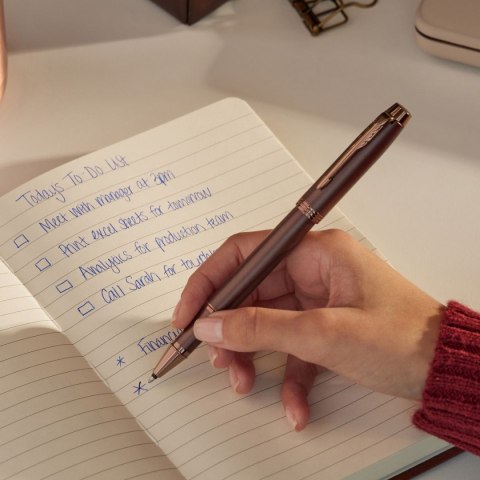 Today's To Do List
Meet with manager at 3pm
Print excel sheets for tomorrow
Analytics for production team
Call Sarah for
* 
*